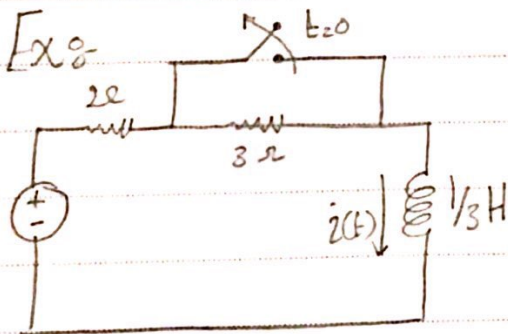 Ex:
t=0
2Ω
3Ω
+
-
i(t)
1/3 H